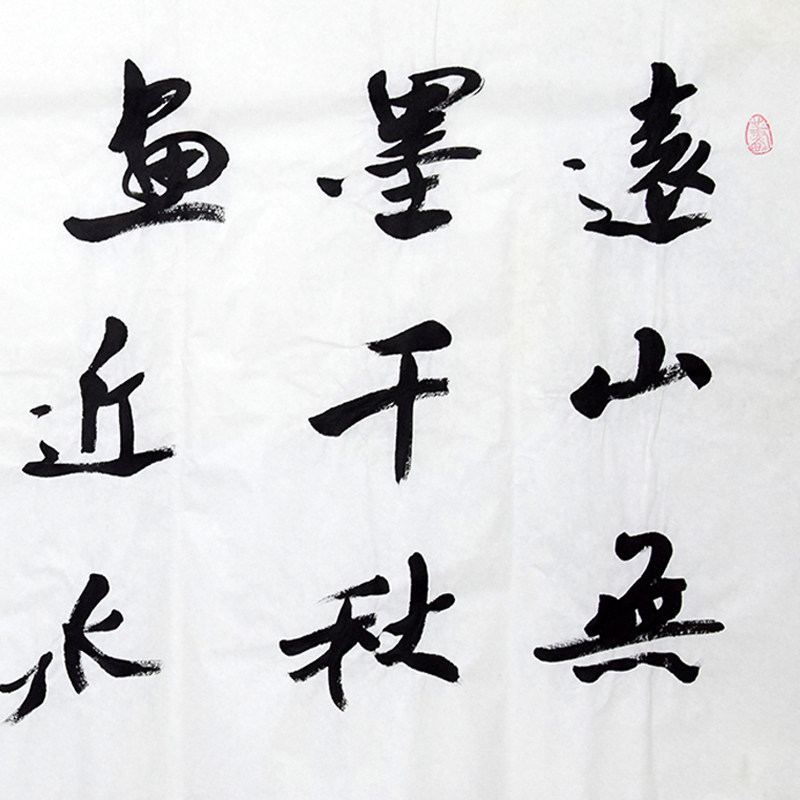 遠山無
墨千秋
畫近水